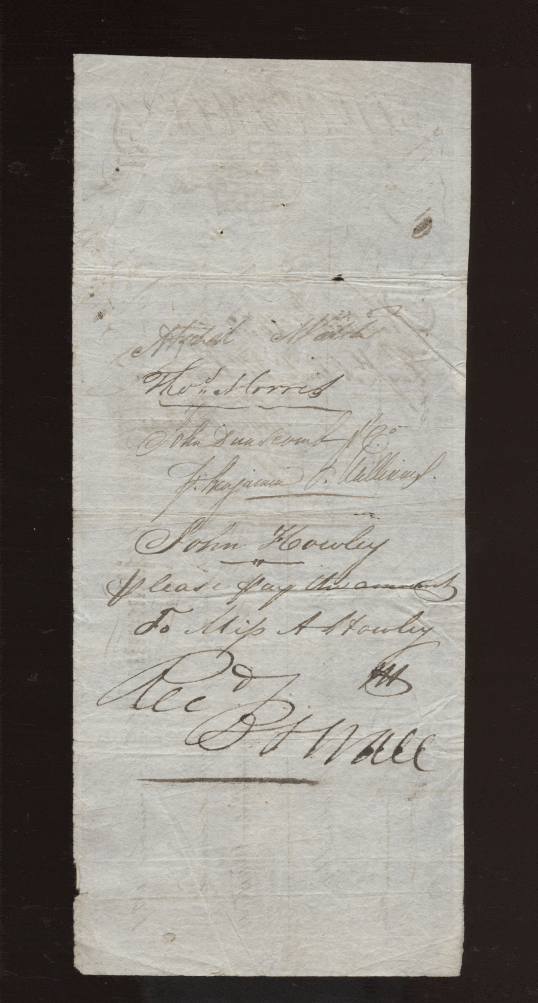 Thos. Morris
John Dunscomb & Co
p. Benjamin G. Williams.
John Howley
please pay the amount
To Miss A Howley
Recd
Wall